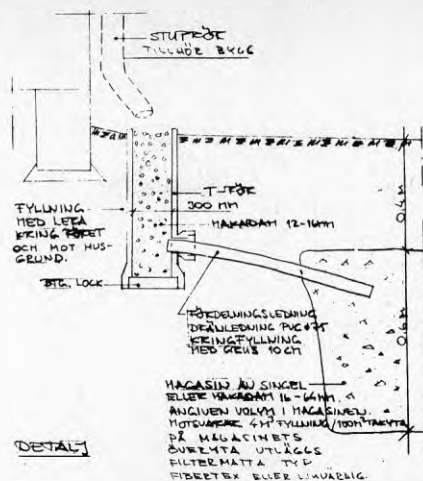 STUPRÖR
TILLHÖR BYGG
FYLLNING
MED LERA
KRING RÖRET
OCH MOT HUS-
GRUND.
T-RÖR
300 MM
MAKADAM 12-16MM
BTG. LOCK
0.4M
0.6M
FÖRDELNINGSLEDNING
DRÄNLEDNING PVC Ø75
KRINGFYLLNING
MED GRUS 10 CM
MAGASIN AV SINGEL
ELLER MAKADAM 16-64MM.
ANGIVEN VOLYM I MAGASINEN.
MOTSVARAR 4M³ FYLLNING/100M² TAKYTA
PÅ MAGASINETS
ÖVERYTA UTLÄGGS
FILTERMATTA TYP
FIBERTEX ELLER LIKVÄRDIG.
DETALJ